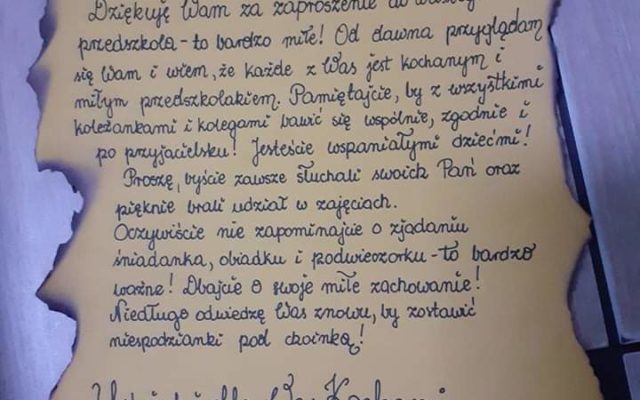 Dziękuję Wam za zaproszenie do
przedszkola - to bardzo miłe! Od dawna przyglądam
się Wam i wiem, że każde z Was jest kochanym i
miłym przedszkolakiem. Pamiętajcie, by z wszystkimi
koleżankami i kolegami bawić się wspólnie, zgodnie i
po przyjacielsku! Jesteście wspaniałymi dziećmi!
Proszę, byście zawsze słuchali swoich Pań oraz
pięknie brali udział w zajęciach.
Oczywiście nie zapominajcie o zjadaniu
śniadanka, obiadku i podwieczorku - to bardzo
ważne! Dbajcie o swoje miłe zachowanie!
Niedługo odwiedzę Was znowu, by zostawić
niespodzianki pod choinką!
Was Kochani